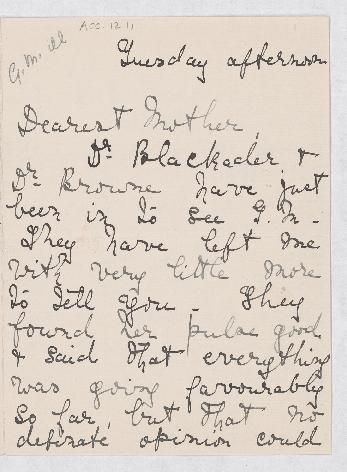 Acc. 1211
G.M. ill
Tuesday afternoon
Dearest Mother,
Dr. Blackader &
Dr. Browne have just
been in to see G.M.
They have left me
with very little more
to tell you. They
found her pulse good
& said that everything
was going favourably
so far, but that no
definate opinion could